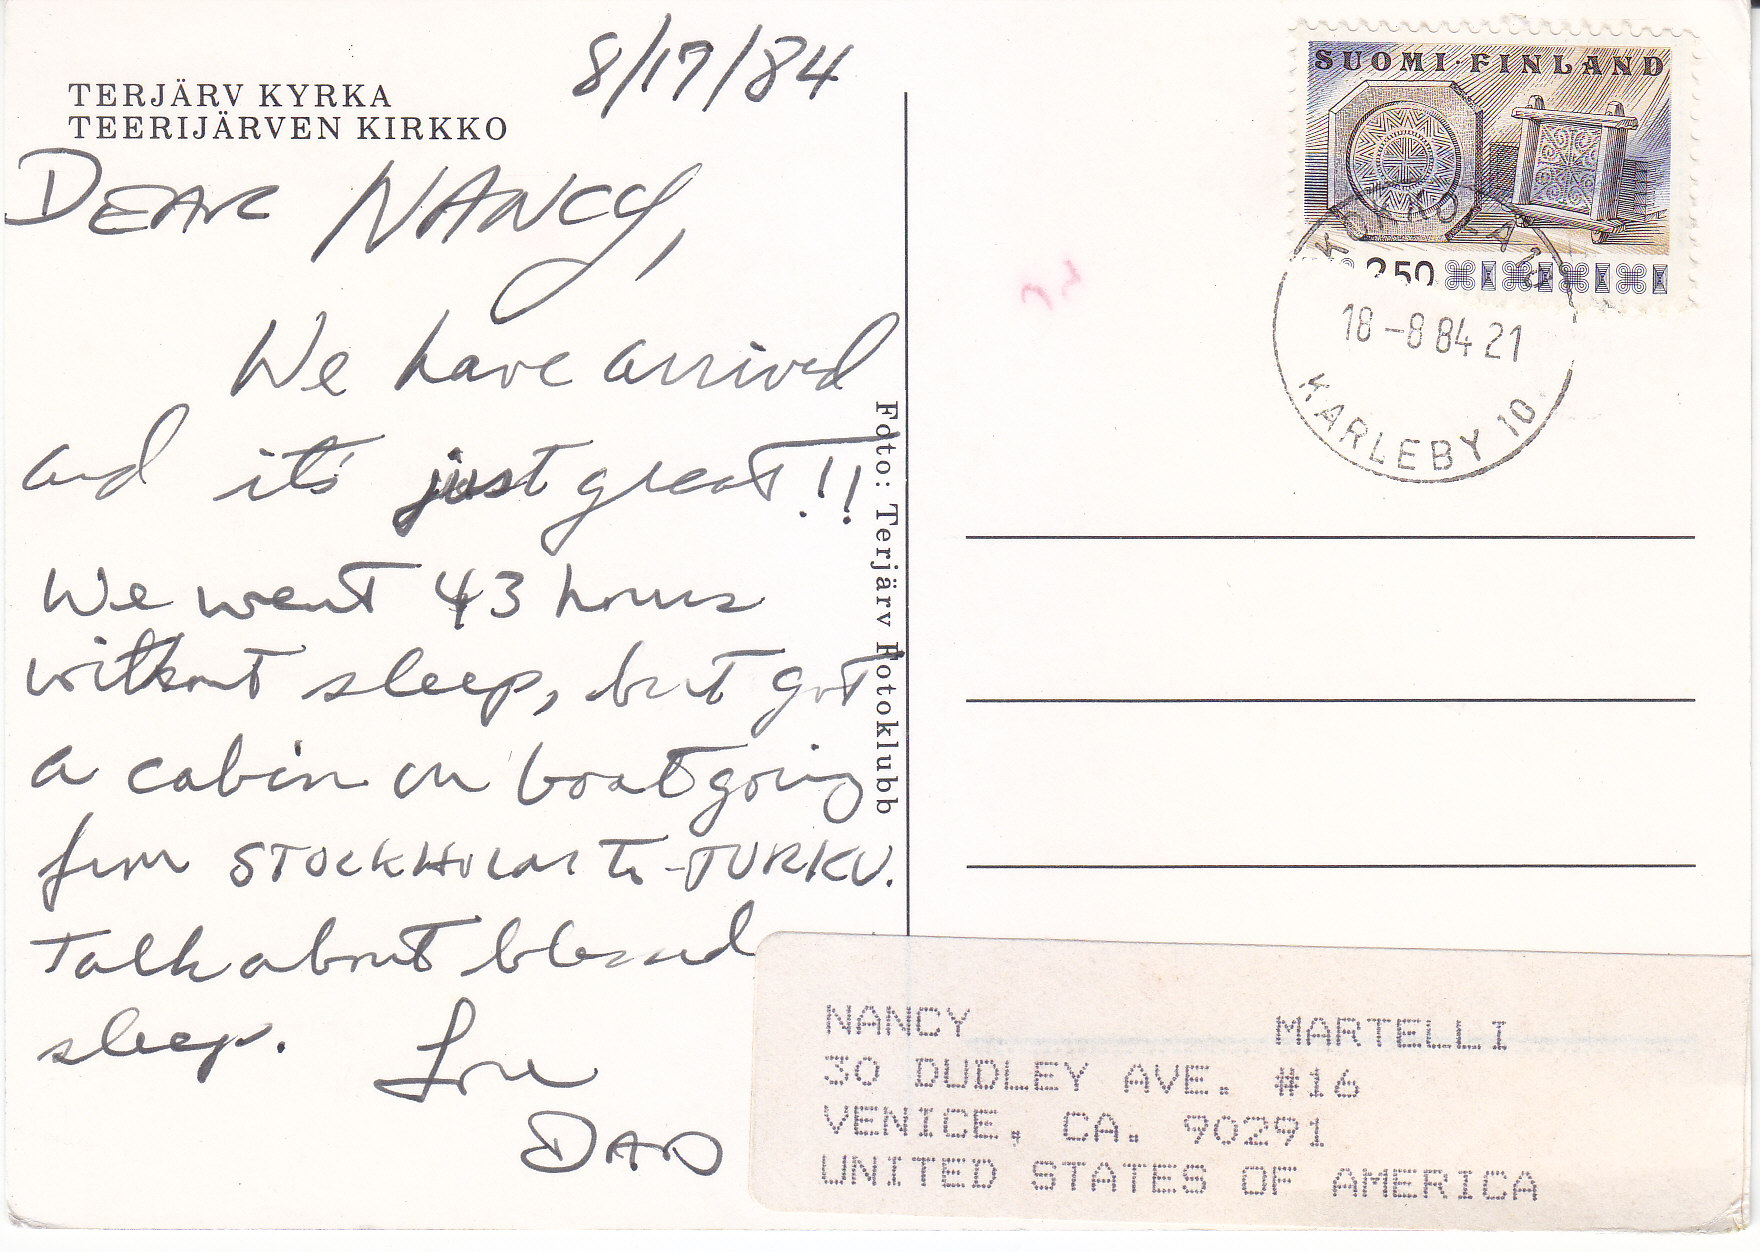 8/17/84
TERJÄRV KYRKA
TEERIJÄRVEN KIRKKO
DEAR NANCY,
We have arrived
and it's just great!!
We went 43 hours
without sleep, but got
a cabin on boat going
from STOCKHOLM to TURKU.
Talk about blessed
sleep.
Love
DAD
Foto: Terjärv Fotoklubb
SUOMI·FINLAND
2,50
KOKKOLA
18-8 84 21
KARLEBY 10
NANCY MARTELLI
30 DUDLEY AVE. #16
VENICE, CA. 90291
UNITED STATES OF AMERICA